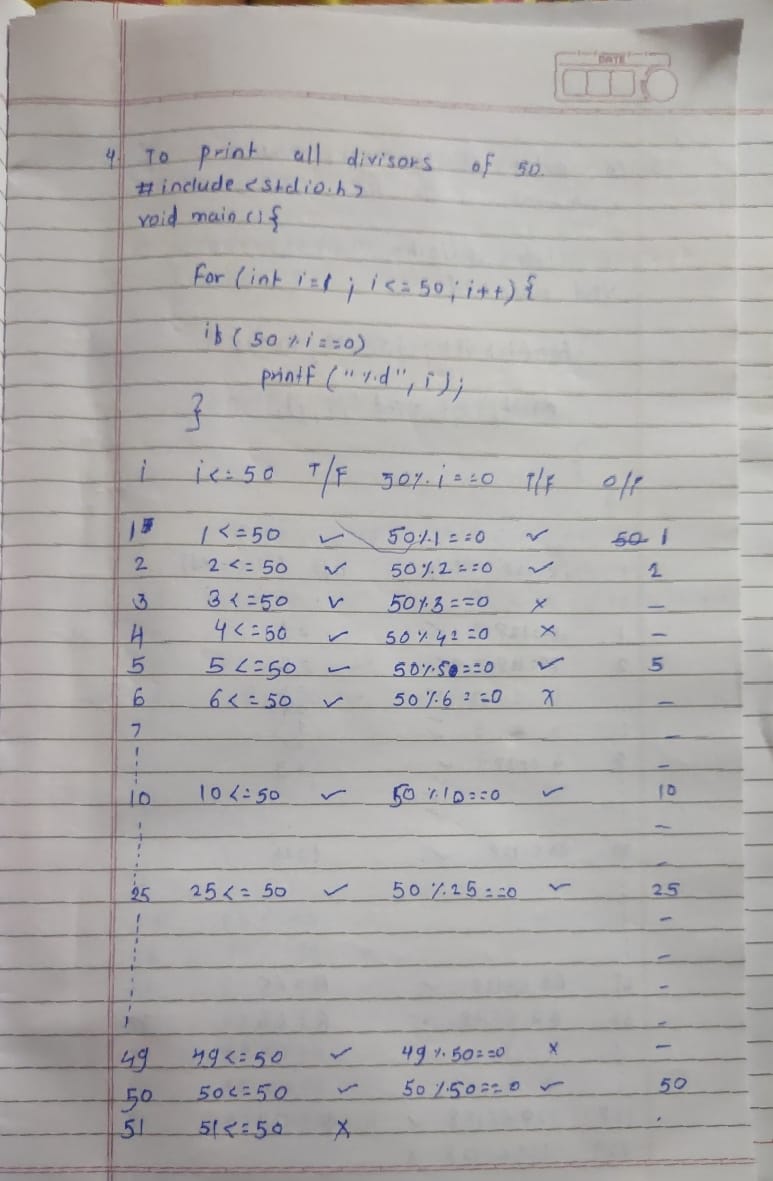 DATE
4. To print all divisors of 50.
#include <stdio.h>
void main () {
for (int i=1 ; i<=50 ; i++) {
if ( 50 % i ==0)
printf ("%d", i );
}
i i<=50 T/F 50%.i==0 T/F O/P
1 1<=50 ✓ 50%1==0 ✓ 50 1
2 2<=50 ✓ 50%2==0 ✓ 2
3 3<=50 ✓ 50%3==0 × —
4 4<=50 ✓ 50%4==0 × —
5 5<=50 ✓ 50%5==0 ✓ 5
6 6<=50 ✓ 50%6==0 × —
7 —
—
10 10<=50 ✓ 50%10==0 ✓ 10
—
—
25 25<=50 ✓ 50%25==0 ✓ 25
—
—
—
—
49 49<=50 ✓ 49%50==0 × —
50 50<=50 ✓ 50%50==0 ✓ 50
51 51<=50 × .